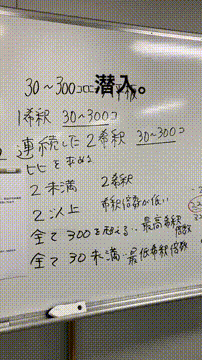 30～300コ 潜入。
1希釈 30～300コ
連続した2希釈 30～300コ
比を求める
2未満 2希釈
2以上 希釈倍数が低い
全て300を超える・・最高希釈倍数
全て30未満・最低希釈倍数